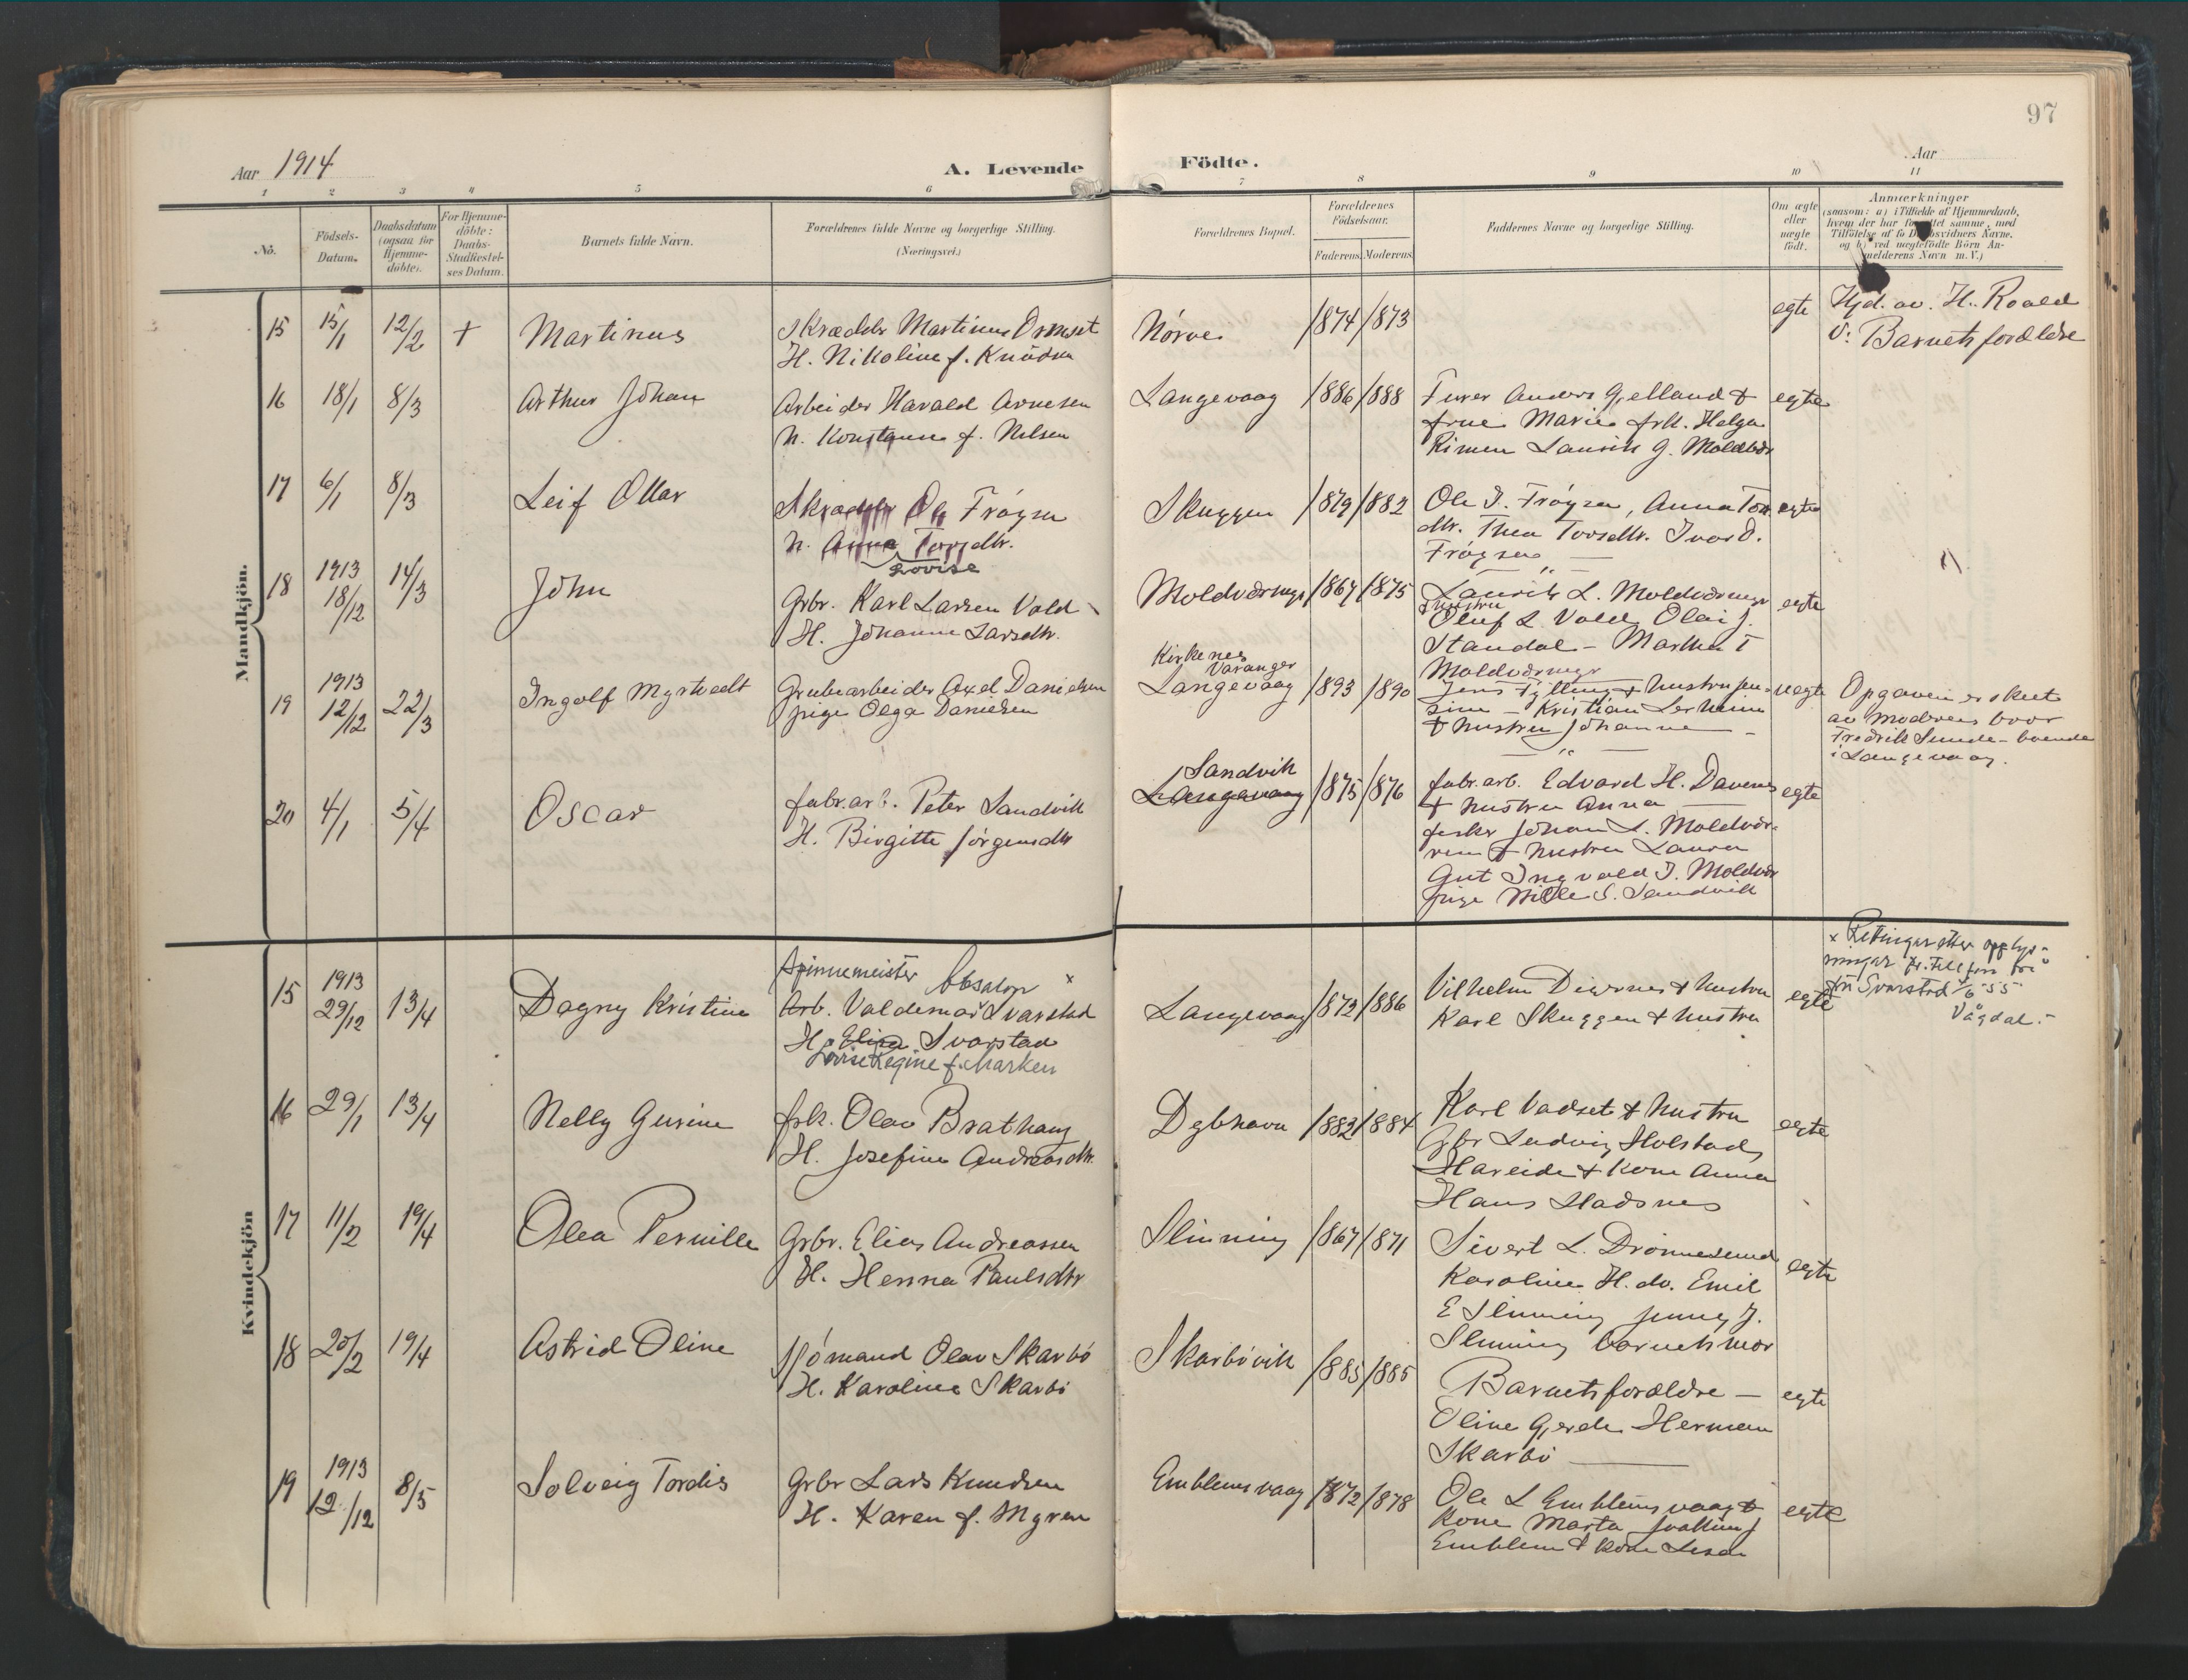 97
Aar 1914
A. Levende
Födte.
Aar
1 2 3 4 5 6 7 8 9 10 11
No.
Födsels-
Datum.
Daabsdatum
(ogsaa for
Hjemme-
döbte).
For Hjemme-
döbte:
Daabs-
Stadfæstel-
ses Datum.
Barnets fulde Navn.
Forældrenes fulde Navne og borgerlige Stilling.
(Næringsvei.)
Forældrenes Bopæl.
Forældrenes
Födselsaar.
Faderens. Moderens.
Faddernes Navne og borgerlige Stilling.
Om ægte
eller
uægte
födt.
Anmærkninger
(saasom: a) i Tilfælde af Hjemmedaab,
hvem der har forrettet samme, med
Tilföielse af to Daabsvidners Navne,
og b) ved uegtefödte Börn An-
melderens Navn m. V.)
Mandkjön.
15 15/1 12/2 + Martinus
Skrædder Martinus Ormset
H. Nikoline f. Knudsen
Nörve 1874 1873
egte
Hjd. av H. Roald
v: Barnets forældre
16 18/1 8/3 Arthur Johan
Arbeider Harald Arnesen
H. Konstanse f. Nilsen
Langevaag 1886 1888
Anders Gjelland &
frue Marie frk. Helga
Rimen Laurits G. Moldvær
egte
17 6/1 8/3 Leif Ottar
Skrædder Ole Fröysa
H. Anna Torsdtr.
Lovise
Skuggen 1879 1882
Ole I. Fröysa, Anna Tors
dtr. Thea Torsdtr. Ivar O.
Fröysa
egte
18 1913 18/12 14/3 John
Grbr. Karl Larsen Vold
H. Johanne Larsdtr.
Moldværsmyr 1867 1875
Laurits L. Moldværsmyr
& hustru
Oluf L. Vold, Olai J.
Standal - Marthe T
Moldværsmyr
egte
19 1913 12/12 22/3 Ingolf Myrtvedt
Grubearbeider Axel Danielsen
pige Olga Danielsen
Kirkenes
Varanger
Langevaag 1893 1890
Jens Fylling & hustru Jen-
sine - Kristian Lerheim
& hustru Johanne
uegte
Opgaven er skeet
av moderens bror
Fredrik Sunde - boende
i Langevaag.
20 4/1 5/4 Oscar
fabr.arb. Peter Sandvik
H. Birgitte Jörgensdtr
Sandvik
Langevaag 1875 1876
fabr.arb. Edvard H. Davenes
& hustru Anna
fisker Johan L. Moldvær-
& hustru Laura
Gut Ingvald J. Moldvær
pige Nille S. Sandvik
egte
Kvindekjön
15 1913 29/12 13/4 Dagny Kristine
Spinnemeister Absalon x
Arb. Valdemar Svarstad
H. Elina Svarstad
Lovise Regine f. Marken
Langevaag 1872 1886
Vilhelm Devrnes & hustru
Karl Skuggen & hustru
egte
x Rettingar etter opplys-
ningar pr. telefon frå
frå Svarstad 1/6 55
Vågdal.-
16 29/1 13/4 Nelly Gurine
fsk. Olav Brathaug
H. Josefine Andreasdtr.
Dybhavn 1882 1884
Karl Vadset & hustru
Grbr Ludvig Holstad,
Hareide & kone Anna
Hans Hadsnes
egte
17 11/2 19/4 Olea Pernille
Grbr. Elias Andreassen
H. Henna Paulsdtr
Slinning 1867 1871
Sivert L. Drönnesund
Karoline H. do. Emil
E Slinning Jenny J.
Slinning barnets mor
egte
18 20/2 19/4 Astrid Oline
Sjömand Olav Skarbö
H. Karoline Skarbö
Skarbövik 1885 1885
Barnets forældre -
Oline Gjerde Herman
Skarbö
egte
19 1913 12/12 8/5 Solveig Tordis
Grbr Lars Knudsen
H. Karen f. Myren
Emblemsvaag 1872 1878
Ole L Emblemsvaag &
kone Marta Joakim J
Emblem & kone
egte